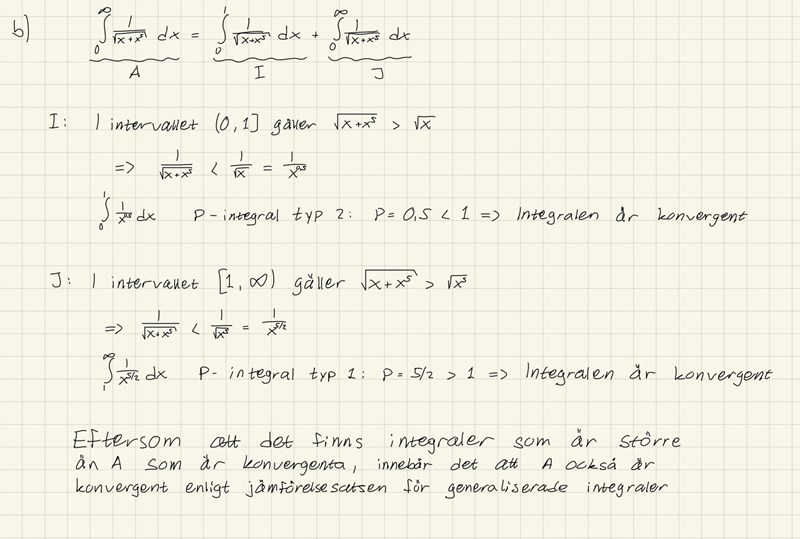 b) ∫₀^∞ 1/√(x+x⁵) dx = ∫₀^1 1/√(x+x⁵) dx + ∫₀^∞ 1/√(x+x⁵) dx
A I J
I: I intervallet (0,1] gäller √(x+x⁵) > √x
=> 1/√(x+x⁵) < 1/√x = 1/x^0,5
∫₀^1 1/x^0,5 dx P-integral typ 2: P=0,5 < 1 => Integralen är konvergent
J: I intervallet [1,∞) gäller √(x+x⁵) > √x⁵
=> 1/√(x+x⁵) < 1/√x⁵ = 1/x^5/2
∫₁^∞ 1/x^5/2 dx P-integral typ 1: P=5/2 > 1 => Integralen är konvergent
Eftersom att det finns integraler som är större
än A som är konvergenta, innebär det att A också är
konvergent enligt jämförelsesatsen för generaliserade integraler